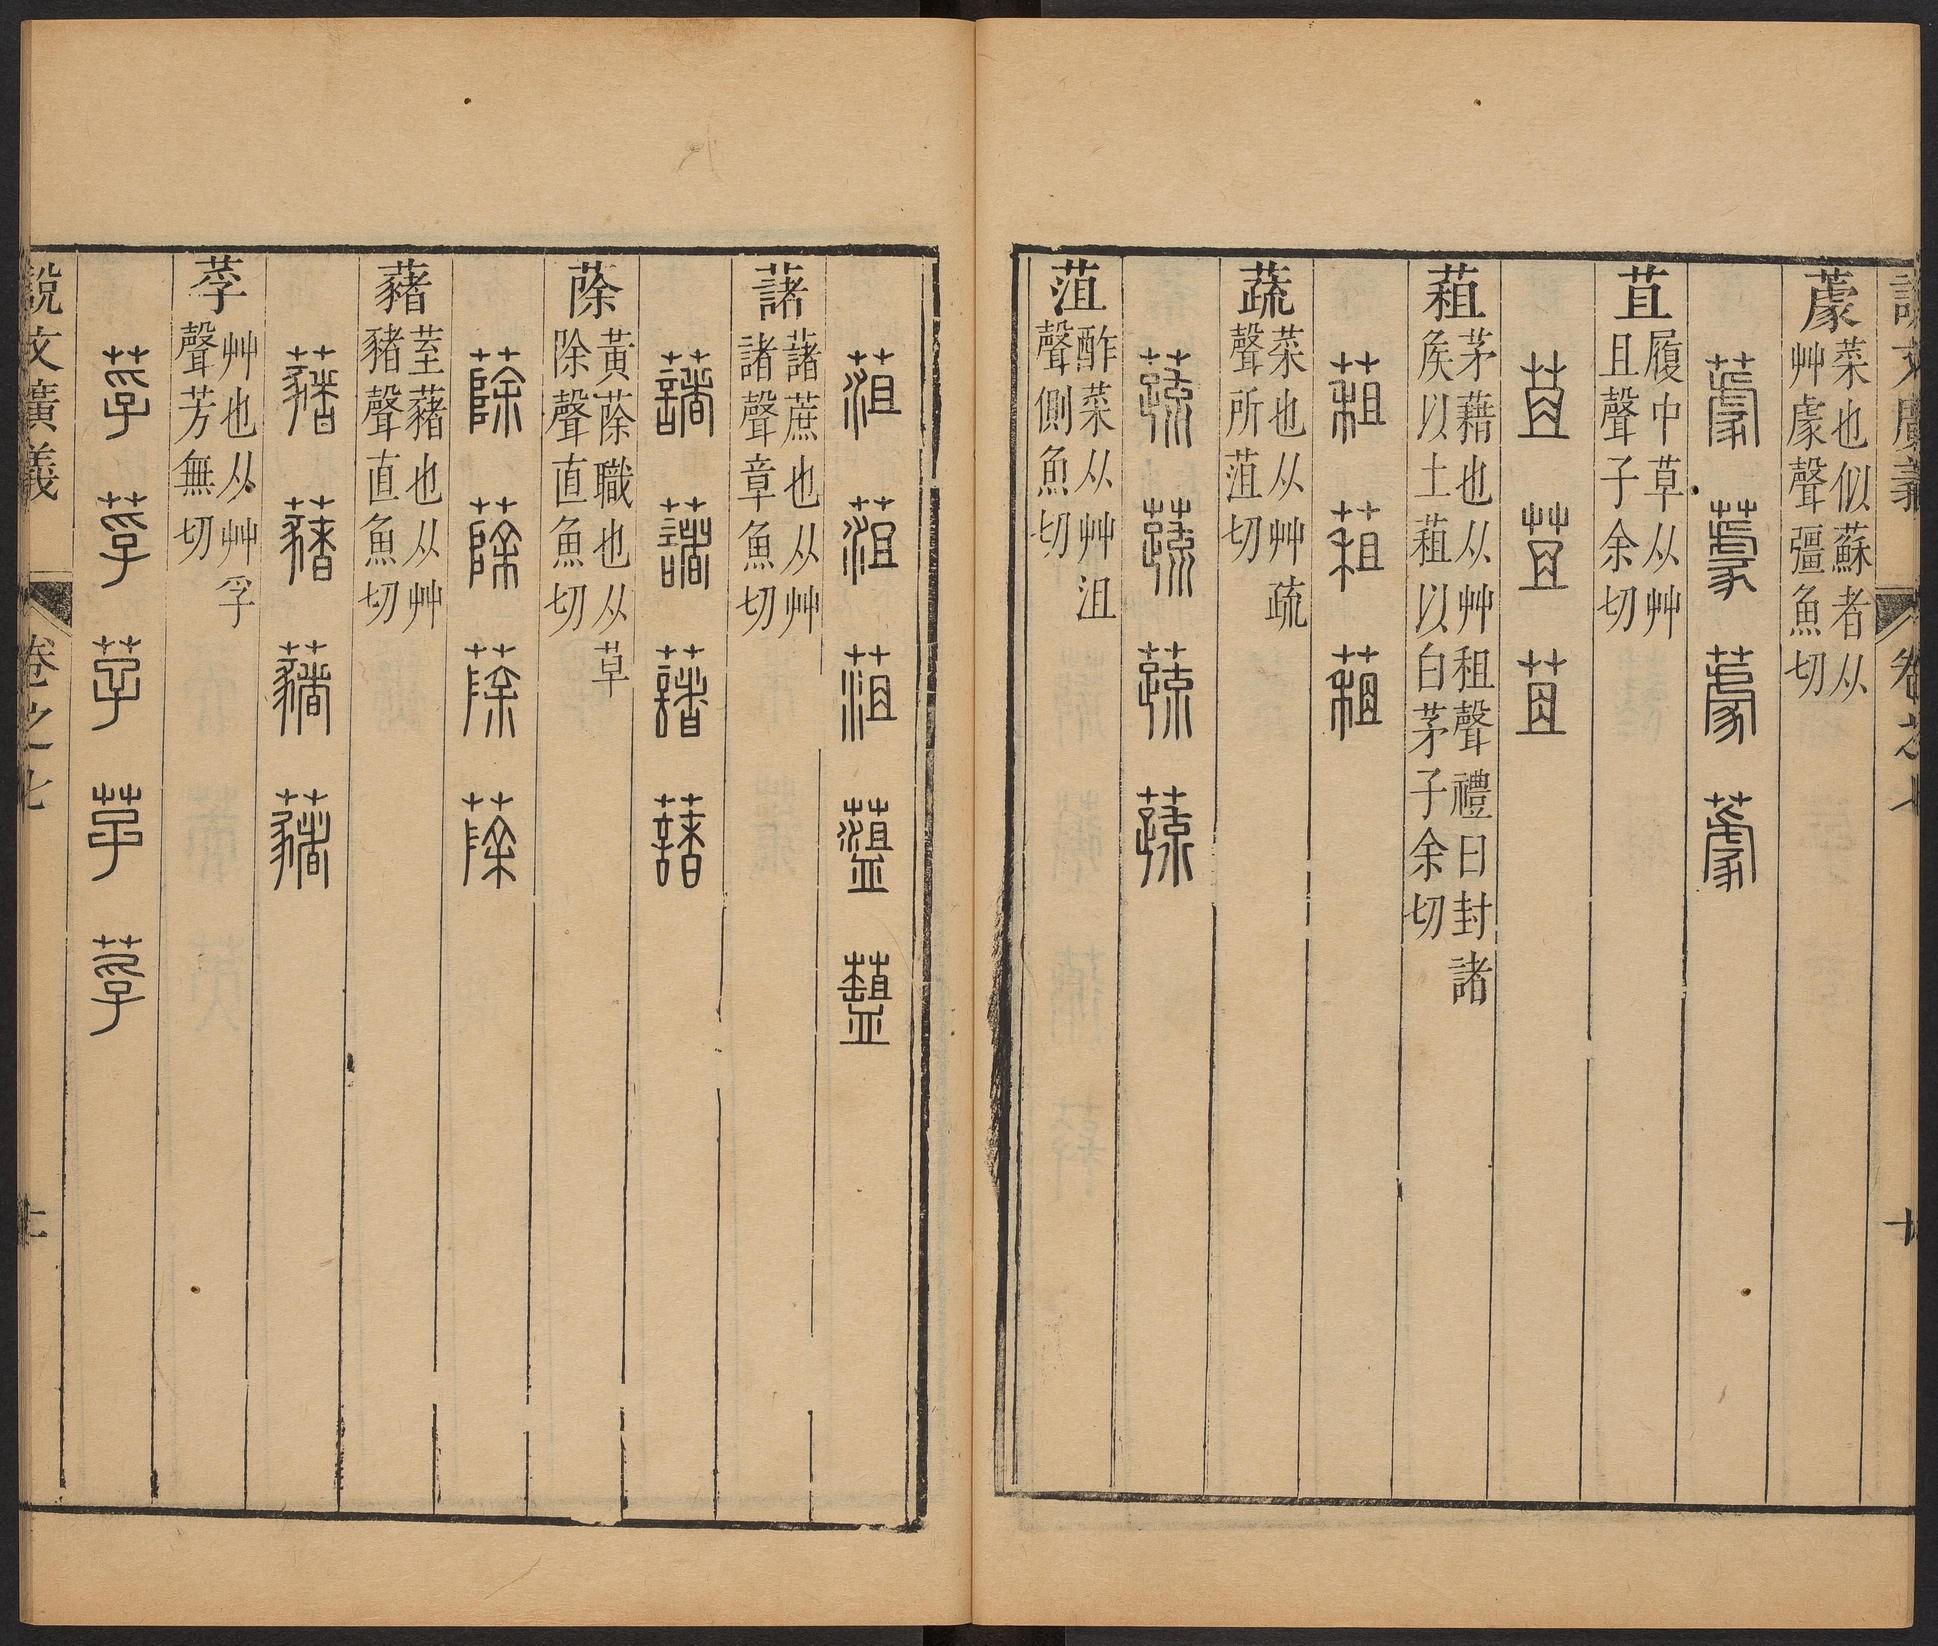 說文廣義 卷之七
蘮 菜也似蘇者从艸豦聲彊魚切
蘮 蘮 蘮 蘮
苴 履中草从艸且聲子余切
苴 苴 苴
蒩 茅藉也从艸租聲禮曰封諸矦以土蒩以白茅子余切
蒩 蒩 蒩
蔬 菜也从艸疏聲所菹切
蔬 蔬 蔬 蔬
菹 酢菜从艸沮聲側魚切
菹 菹 菹 
藷 藷蔗也从艸諸聲章魚切
藷 藷 藷 藷
蒢 黃蒢職也从草除聲直魚切
蒢 蒢 蒢 蒢
藸 荎藸也从艸豬聲直魚切
藸 藸 藸 藸
莩 艸也从艸孚聲芳無切
莩 莩 莩 莩 莩
說文廣義 卷之七